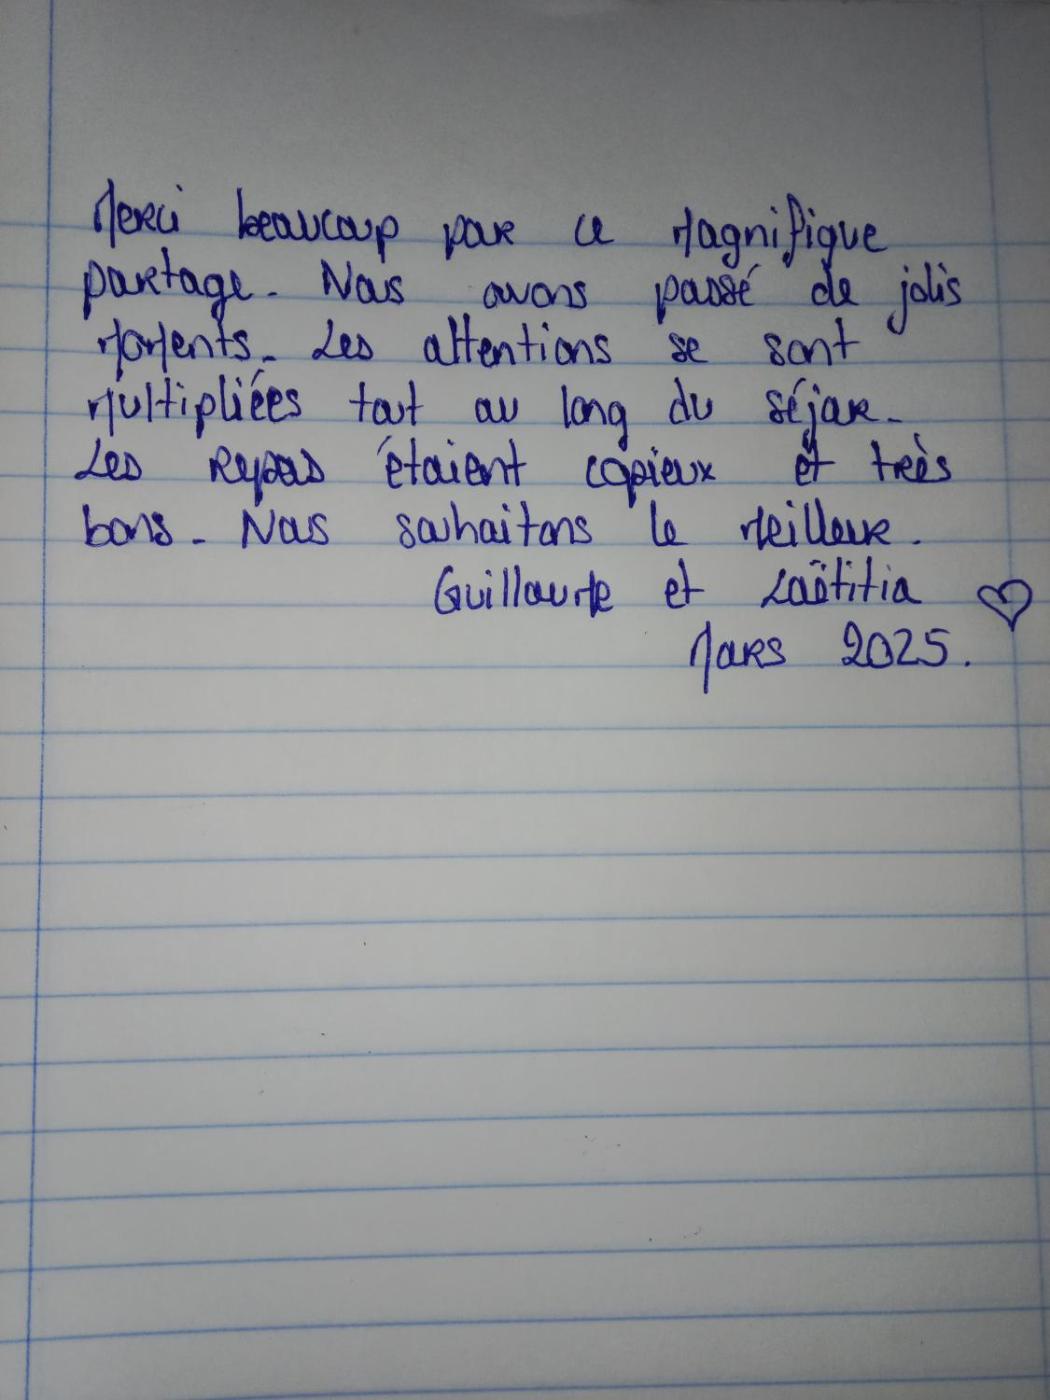 Merci beaucoup pour ce magnifique
partage. Nous avons passé de jolis
moments. Les attentions se sont
multipliées tout au long du séjour.
Les repas étaient copieux et très
bons. Nous souhaitons le meilleur.
Guillaume et Laëtitia ♡
Mars 2025.